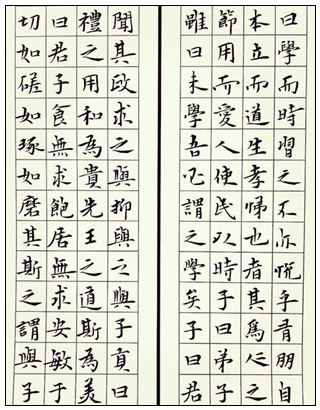 曰學而時習之不亦悅乎有朋自
本立而道生孝悌也者其為仁之
節用而愛人使民以時子曰弟子
雖曰未學吾必謂之學矣子曰君
聞其政求之與抑與之與子貢曰
禮之用和為貴先王之道斯為美
曰君子食無求飽居無求安敏于
切如磋如琢如磨其斯之謂與子